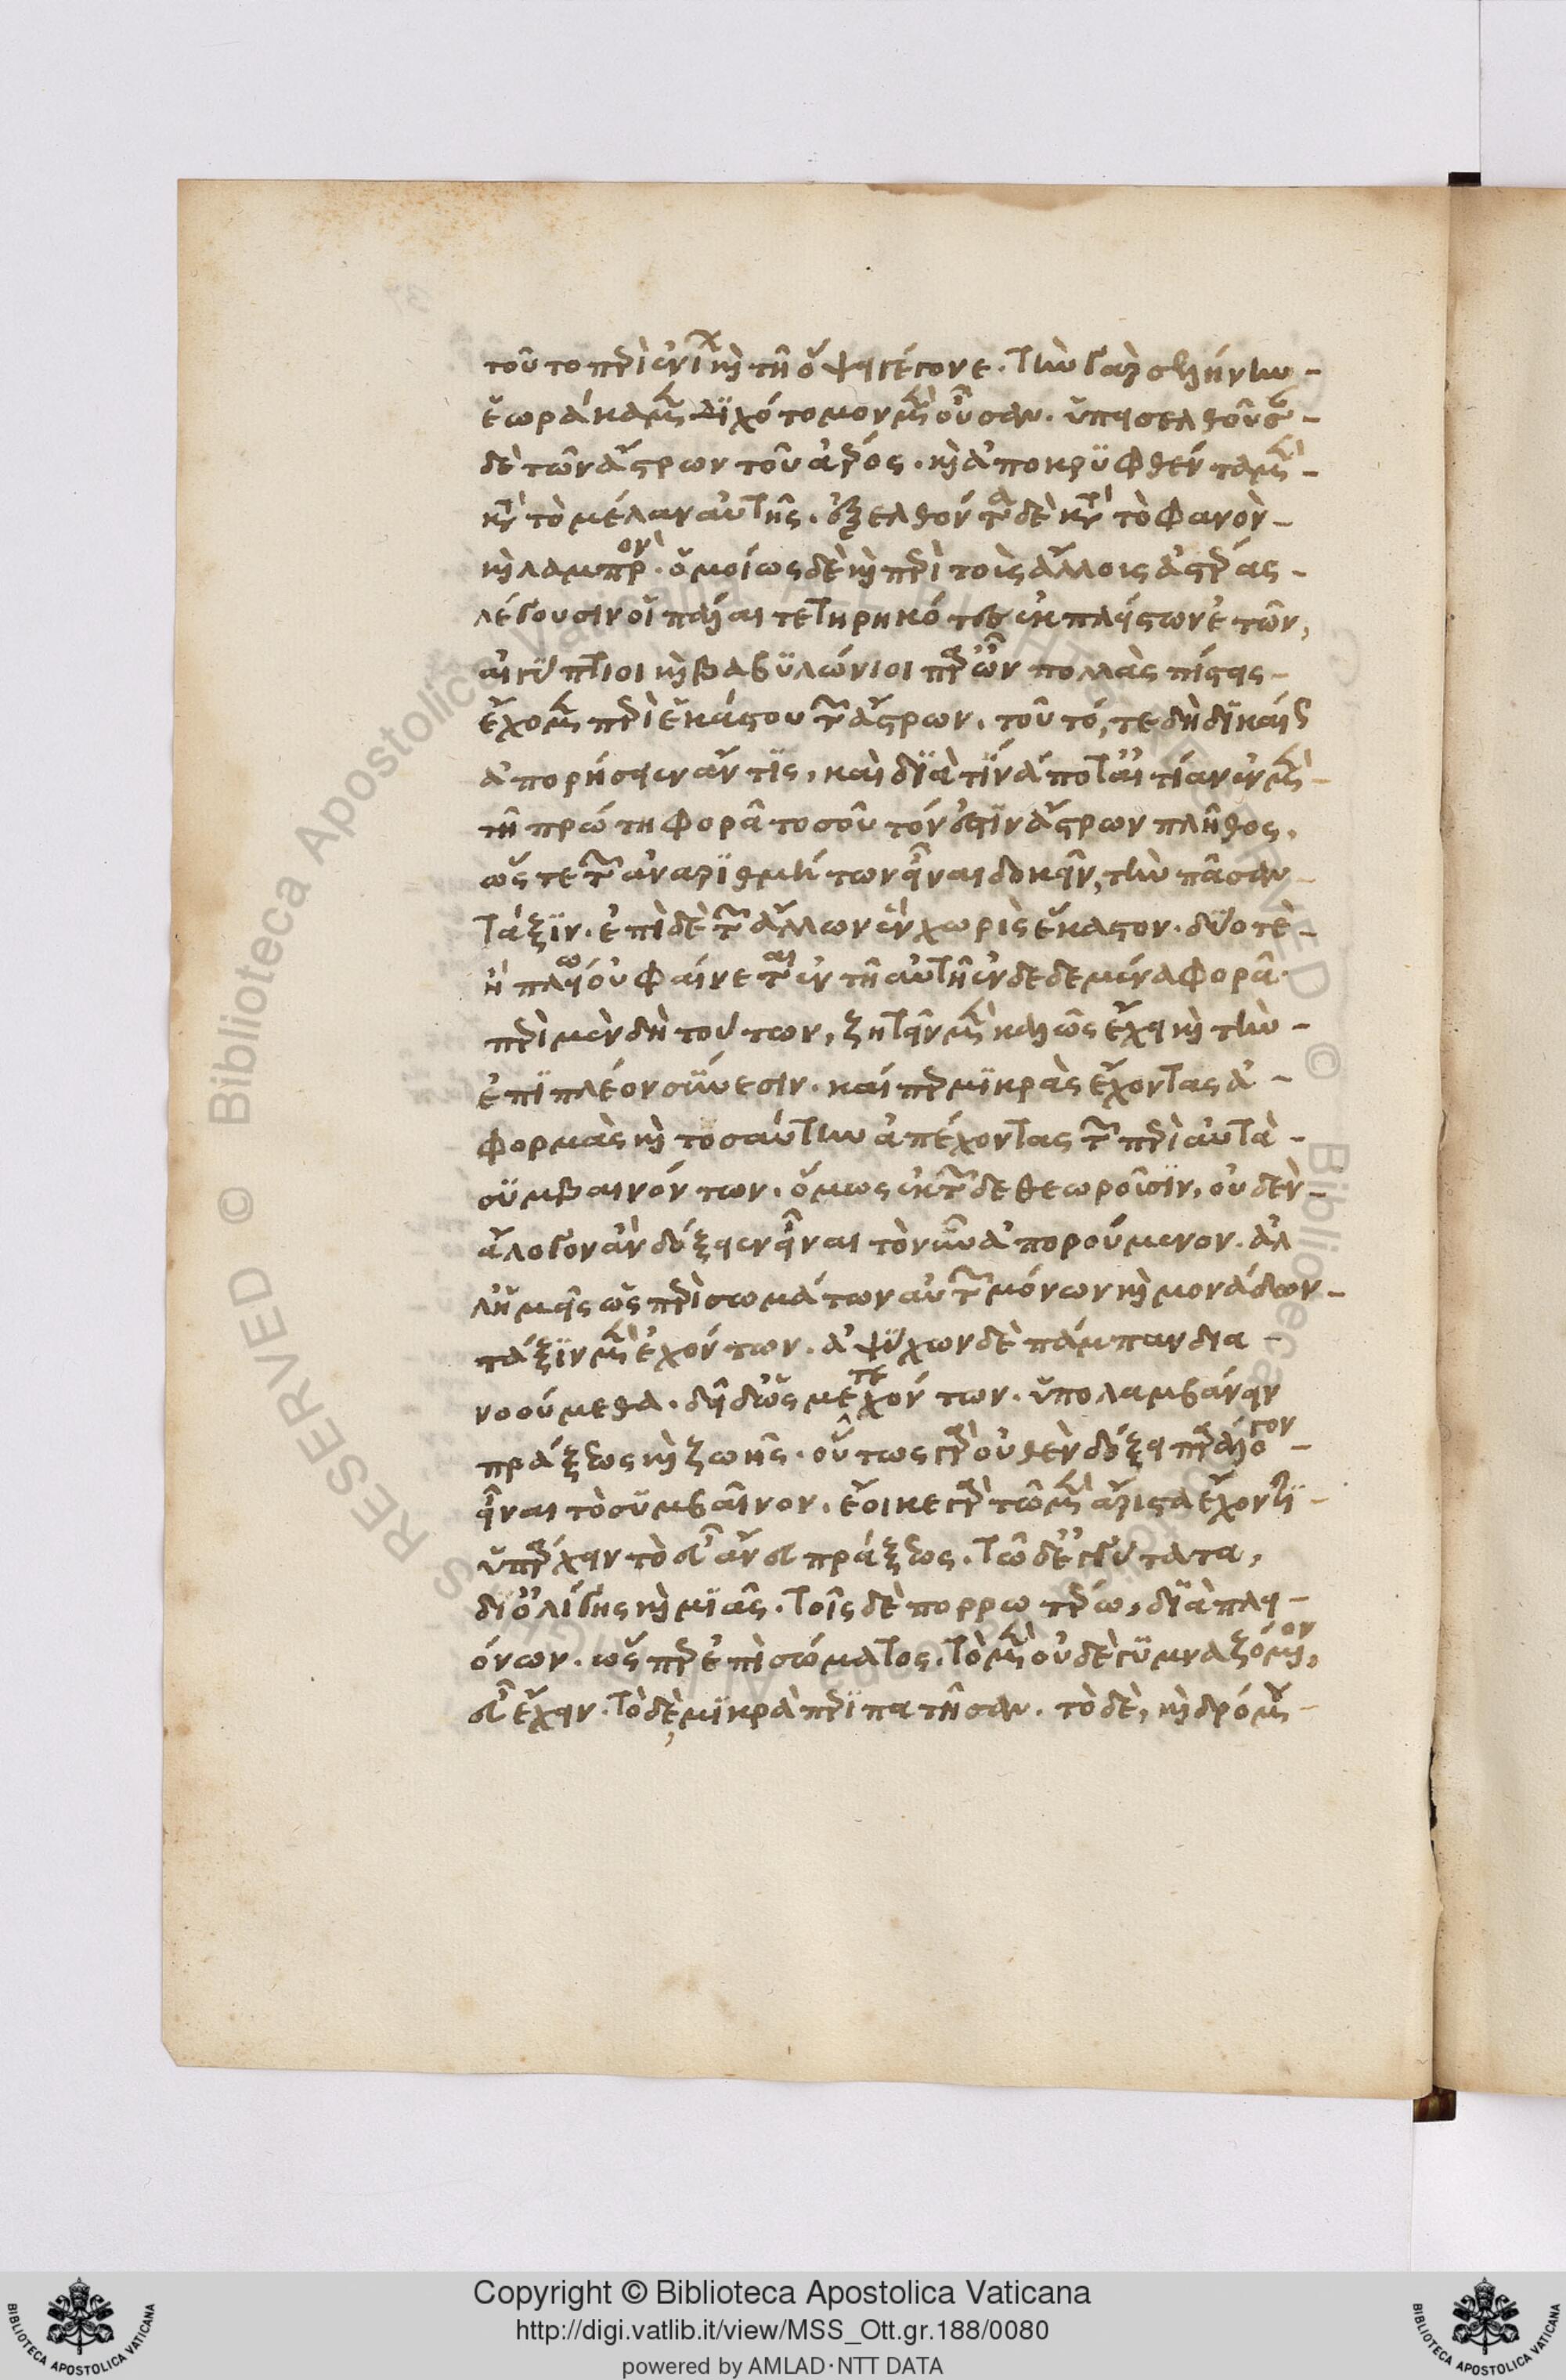 τοῦτο περὶ ἐνίων καὶ τῆ ὄψει γέγονε. τὴν γὰρ σελήνην
ἑωράκαμεν διχότομον μὲν οὖσαν. ὑπεισελθοῦσαν
δὲ τῶν ἄστρων τοῦ ἄρεος. καὶ ἀποκρυφθέντα μὲν
κατὰ τὸ μέλαν αὐτῆς. ἐξελθόντα δὲ κατὰ τὸ φανὸν
καὶ λαμπρόν. ὁμοίως δὲ καὶ περὶ τοὺς ἄλλους ἀστέρας
λέγουσιν οἱ πάλαι τετηρηκότες ἐκ πλείστων ἐτῶν,
αἰγύπτιοι καὶ βαβυλώνιοι παρ' ὧν πολλὰς πίστεις
ἔχομεν περὶ ἑκάστου τῶν ἄστρων. τοῦτό, τε δὴ δικαίως
ἀπορήσειεν ἄν τις, καὶ διὰ τίνα ποτ' αἰτίαν ἐν μὲν
τῆ πρώτη φορᾶ τοσοῦτόν ἐστιν ἄστρων πλῆθος,
ὥστε τῶν ἀναριθμήτων εἶναι δοκεῖν, τὴν πᾶσαν
τάξιν. ἐπὶ δὲ τῶν ἄλλων ἓν χωρὶς ἕκαστον. δύο τὲ
ἢ πλείω οὐ φαίνεται ἐν τῆ αὐτῆ ἐνδεδεμένα φορᾶ.
περὶ μὲν δὴ τούτων, ζητεῖν μὲν καλῶς ἔχει καὶ τὴν
ἐπὶ πλέον σύνεσιν. καίπερ μικρὰς ἔχοντας ἀ
φορμὰς καὶ τοσαύτην ἀπέχοντας τῶν περὶ αὐτὰ
συμβαινόντων. ὅμως ἐκ τῶν δε θεωροῦσιν, οὐδὲν
ἄλογον ἂν δόξειεν εἶναι τὸ νῦν ἀπορούμενον. ἀλ
λ' ἡμεῖς ὡς περὶ σωμάτων αὐτῶν μόνων καὶ μονάδων
τάξιν μὲν ἐχόντων. ἀψύχων δὲ πάμπαν δια
νοούμεθα. δεῖ δ' ὡς μετεχόντων. ὑπολαμβάνειν
πράξεως καὶ ζωῆς. οὕτως γὰρ οὐθὲν δόξει παράλογον
εἶναι τὸ συμβαῖνον. ἔοικε γὰρ τῶ μὲν ἄριστα ἔχοντι
ὑπάρχειν τὸ εὖ ἄνευ πράξεως. τῶ δ' ἐγγύτατα,
δι' ὀλίγης καὶ μιᾶς. τοῖς δὲ πορρωτέρω, διὰ πλει
όνων. ὥσπερ ἐπὶ σώματος. τὸ μὲν οὐδὲ γυμναζόμενον,
εὖ ἔχειν. τὸ δὲ, μικρὰ περιπατῆσαν. τὸ δὲ, καὶ δρόμου
Copyright © Biblioteca Apostolica Vaticana
http://digi.vatlib.it/view/MSS_Ott.gr.188/0080
powered by AMLAD·NTT DATA